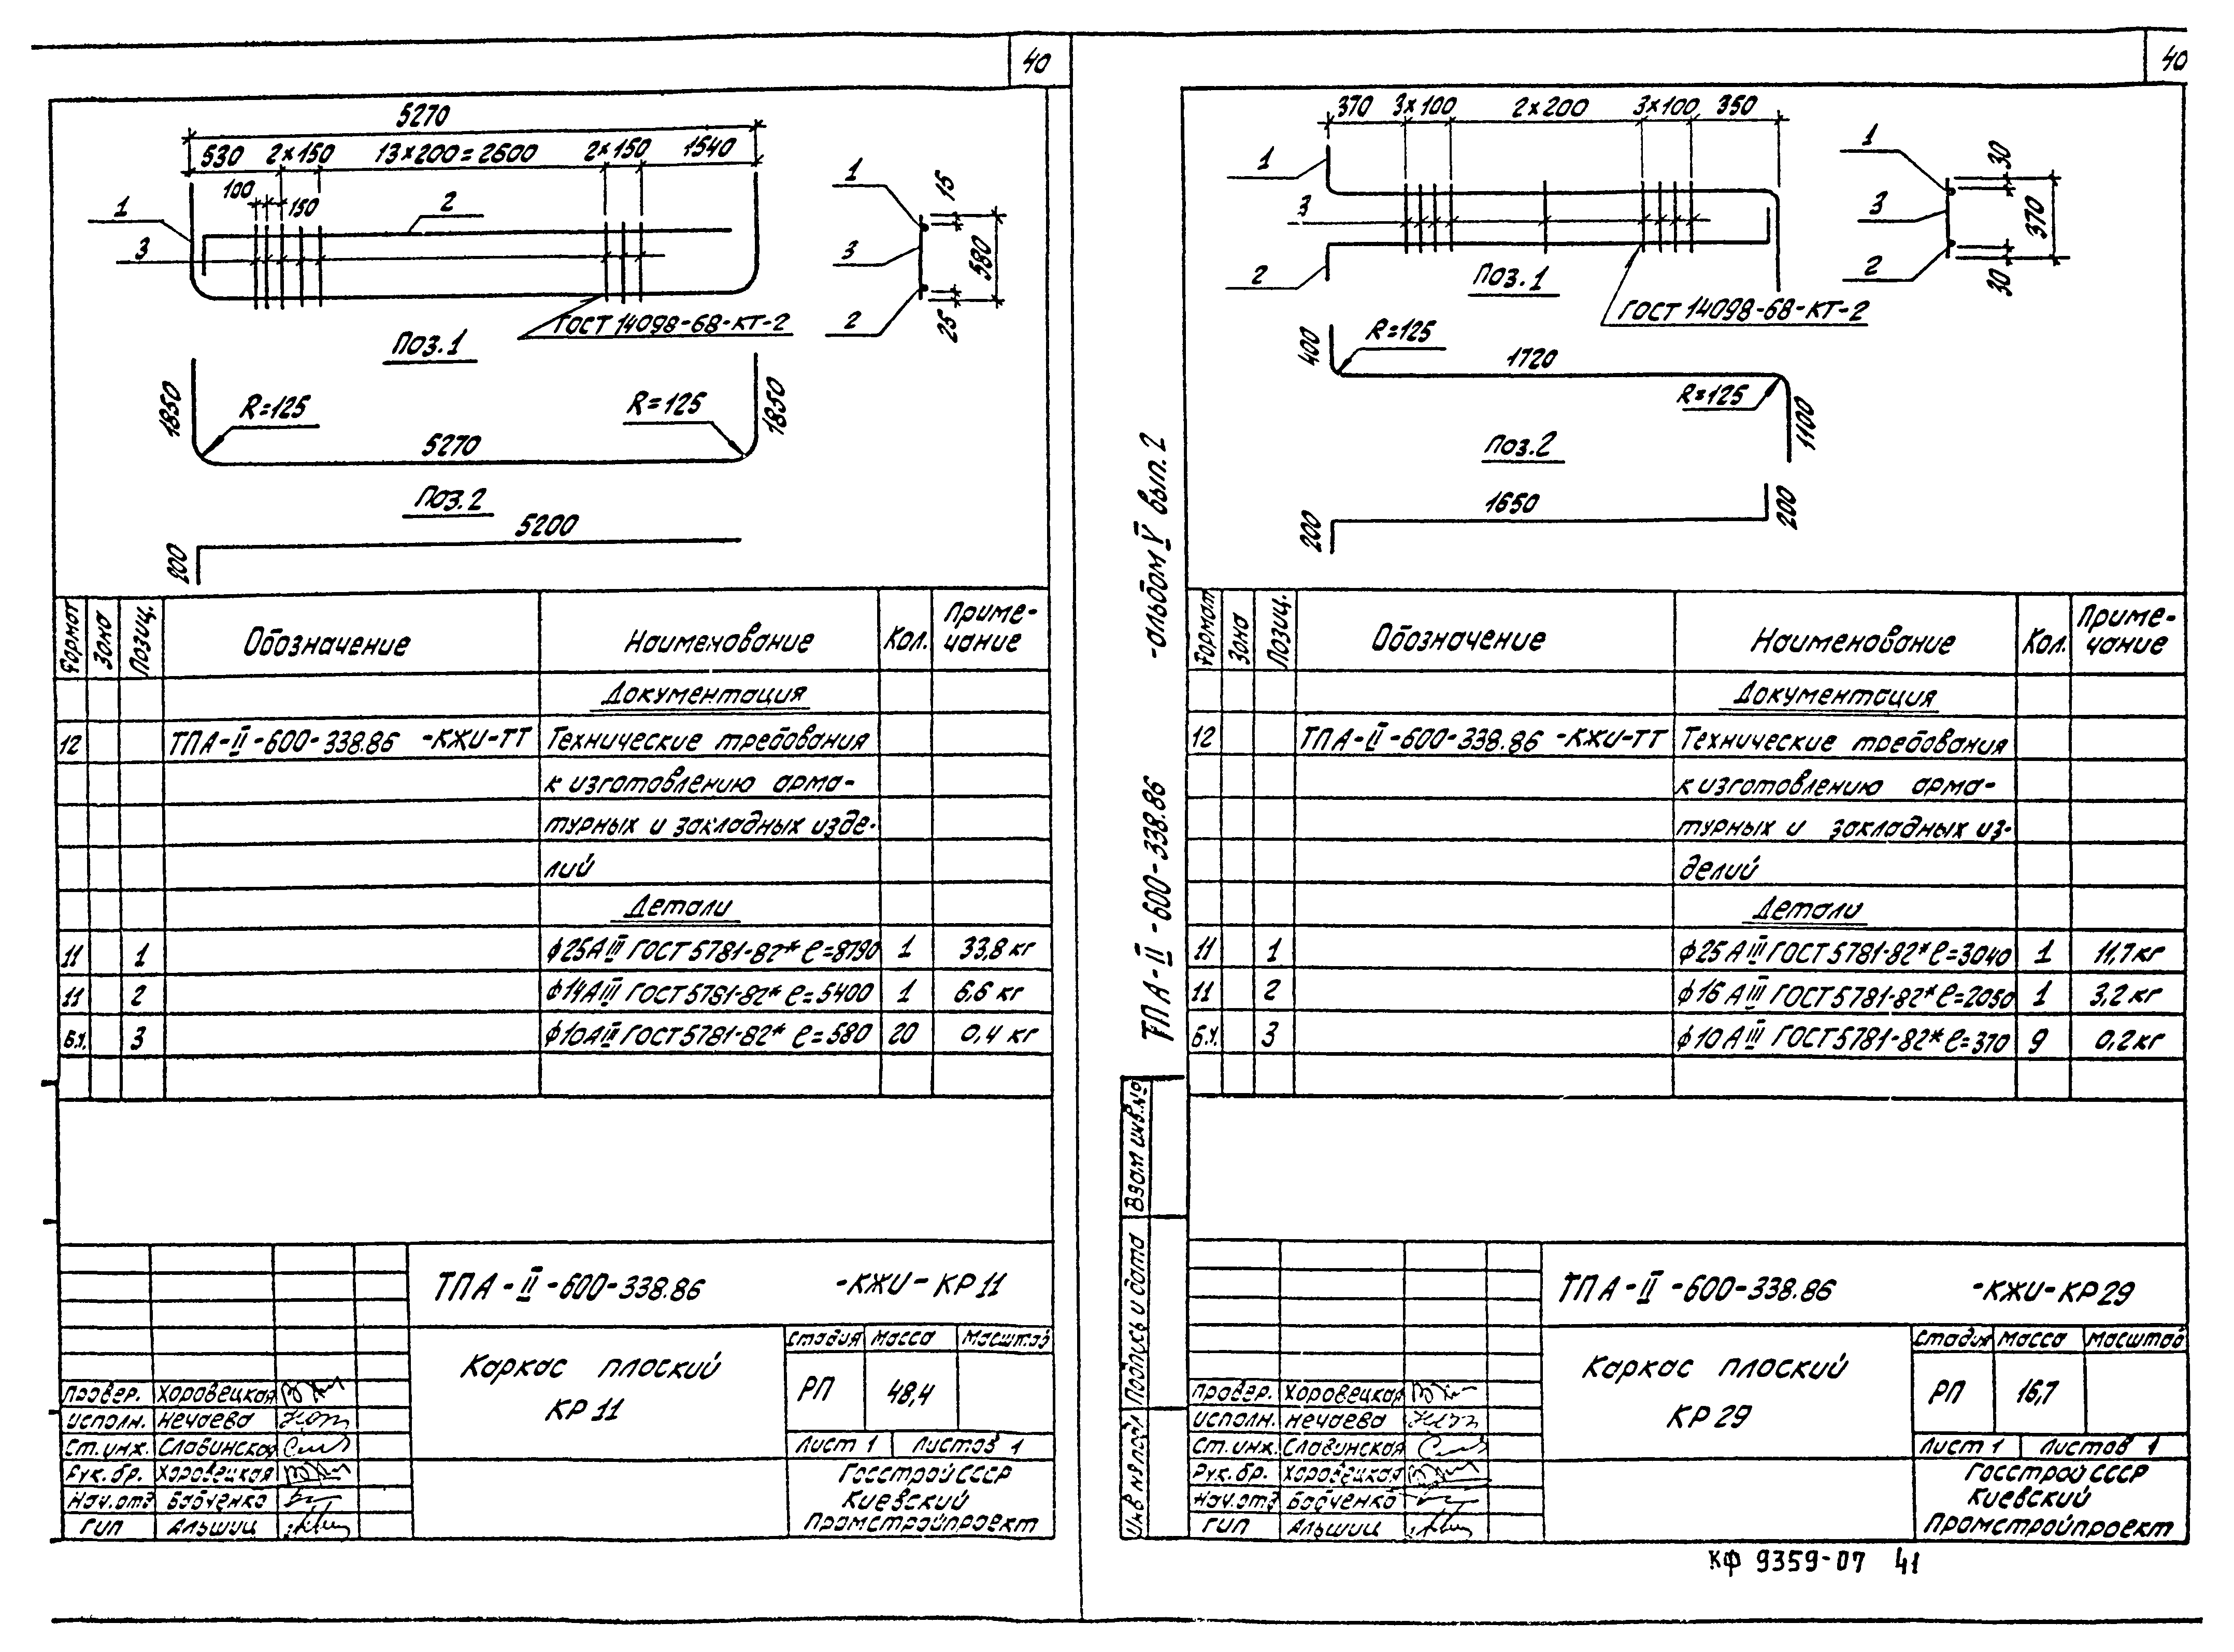 40
5270
530 2×150 13×200=2600 2×150 1540
100
150
1
2
3
1
3
2
15
580
25
ГОСТ 14098-68-КТ-2
Поз.1
1850
R=125
R=125
1850
5270
Поз.2
5200
200
Формат Зона Позиц. Обозначение Наименование Кол. Приме-
чание
Документация
12 ТПА-II-600-338.86 -КЖИ-ТТ Технические требования
к изготовлению арма-
турных и закладных изде-
лий
Детали
11 1 ф25АIII ГОСТ 5781-82* ℓ=8790 1 33,8 кг
11 2 ф14АIII ГОСТ 5781-82* ℓ=5400 1 6,6 кг
Б.Ч. 3 ф10АIII ГОСТ 5781-82* ℓ=580 20 0,4 кг
ТПА-II-600-338.86 -КЖИ-КР11
Каркас плоский
КР11
Стадия Масса Масштаб
РП 48,4
Лист 1 Листов 1
Госстрой СССР
Киевский
Промстройпроект
Провер. Хоровецкая
Исполн. Нечаева
Ст.инж. Славинская
Рук.бр. Хоровецкая
Нач.отд Бабченко
ГИП Альшиц
40
370 3×100 2×200 3×100 350
1
3
2
1
3
2
30
370
30
Поз.1
ГОСТ 14098-68-КТ-2
400
R=125
1720
R=125
1100
Поз.2
1650
200
200
ТПА-II-600-338.86 -альбом V вып.2
Формат Зона Позиц. Обозначение Наименование Кол. Приме-
чание
Документация
12 ТПА-II-600-338.86 -КЖИ-ТТ Технические требования
к изготовлению арма-
турных и закладных из-
делий
Детали
11 1 ф25АIII ГОСТ 5781-82* ℓ=3040 1 11,7кг
11 2 ф16АIII ГОСТ 5781-82* ℓ=2050 1 3,2 кг
Б.Ч. 3 ф10АIII ГОСТ 5781-82* ℓ=370 9 0,2кг
Инв № подл Подпись и дата Взам инв.№
ТПА-II-600-338.86 -КЖИ-КР29
Каркас плоский
КР29
Стадия Масса Масштаб
РП 16,7
Лист 1 Листов 1
Госстрой СССР
Киевский
Промстройпроект
Провер. Хоровецкая
Исполн. Нечаева
Ст.инж. Славинская
Рук.бр. Хоровецкая
Нач.отд Бабченко
ГИП Альшиц
КФ 9359-07 41